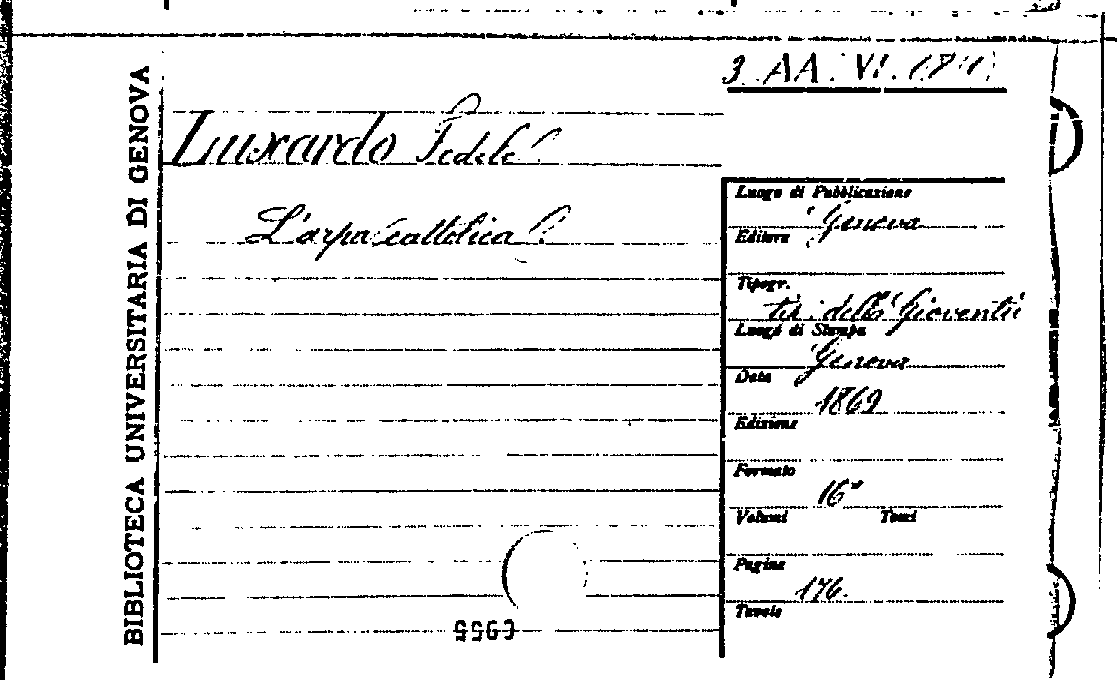 BIBLIOTECA UNIVERSITARIA DI GENOVA
3. AA. VI.
Luxardo Fedele
L'arpa cattolica
Luogo di Pubblicazione
Genova
Editore
Tipogr.
tip. della Gioventù
Luogo di Stampa
Genova
Data
1869
Edizione
Formato
16°
Volumi Tomi
Pagine
176.
Tavole